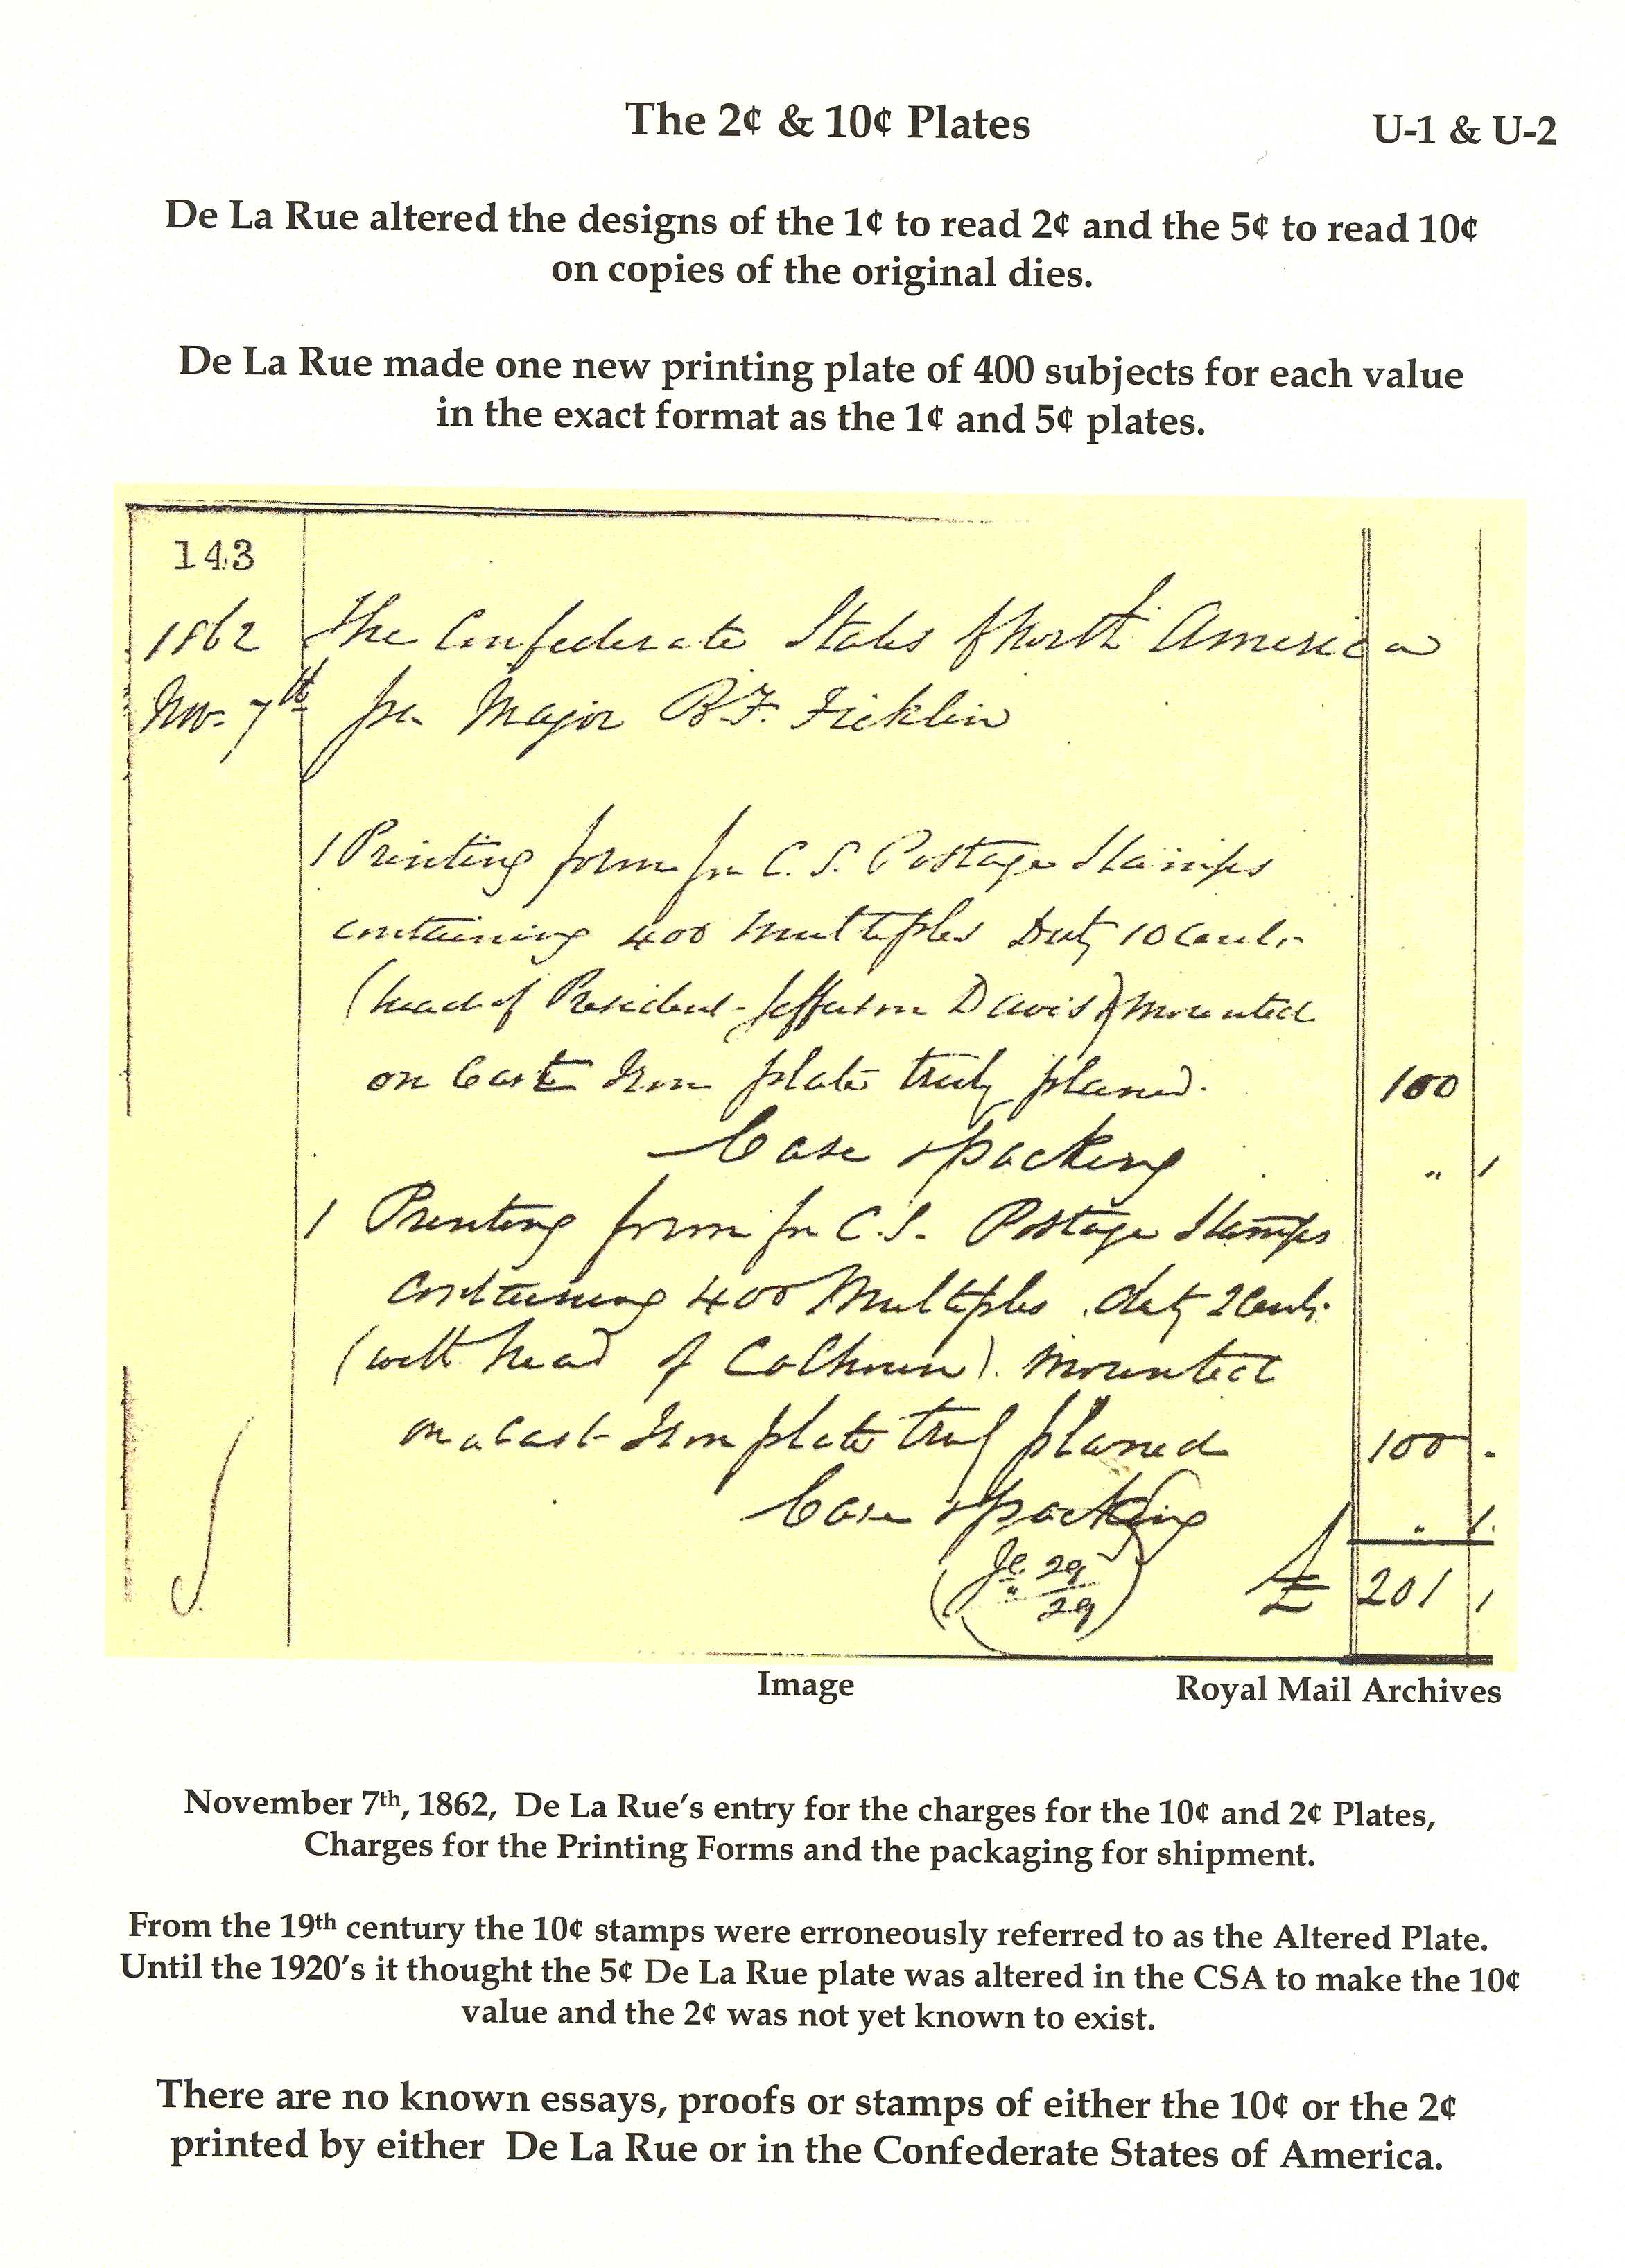 The 2¢ & 10¢ Plates U-1 & U-2
De La Rue altered the designs of the 1¢ to read 2¢ and the 5¢ to read 10¢
on copies of the original dies.
De La Rue made one new printing plate of 400 subjects for each value
in the exact format as the 1¢ and 5¢ plates.
143
1862 The Confederate States of North America
Nov. 7th per Major B. F. Ficklin
1 Printing form for C. S. Postage Stamps
containing 400 Multiples Duty 10 Cents
(head of President Jefferson Davis) mounted
on Cast Iron plate truly planed. 100
Case & packing " 1
1 Printing form for C.S. Postage Stamps
Containing 400 Multiples duty 2 Cents.
(with head of Calhoun). mounted
on a Cast Iron plate truly planed 100 -
Case & packing " 1.
29
29
£ 201 1
Image Royal Mail Archives
November 7th, 1862, De La Rue's entry for the charges for the 10¢ and 2¢ Plates,
Charges for the Printing Forms and the packaging for shipment.
From the 19th century the 10¢ stamps were erroneously referred to as the Altered Plate.
Until the 1920's it thought the 5¢ De La Rue plate was altered in the CSA to make the 10¢
value and the 2¢ was not yet known to exist.
There are no known essays, proofs or stamps of either the 10¢ or the 2¢
printed by either De La Rue or in the Confederate States of America.